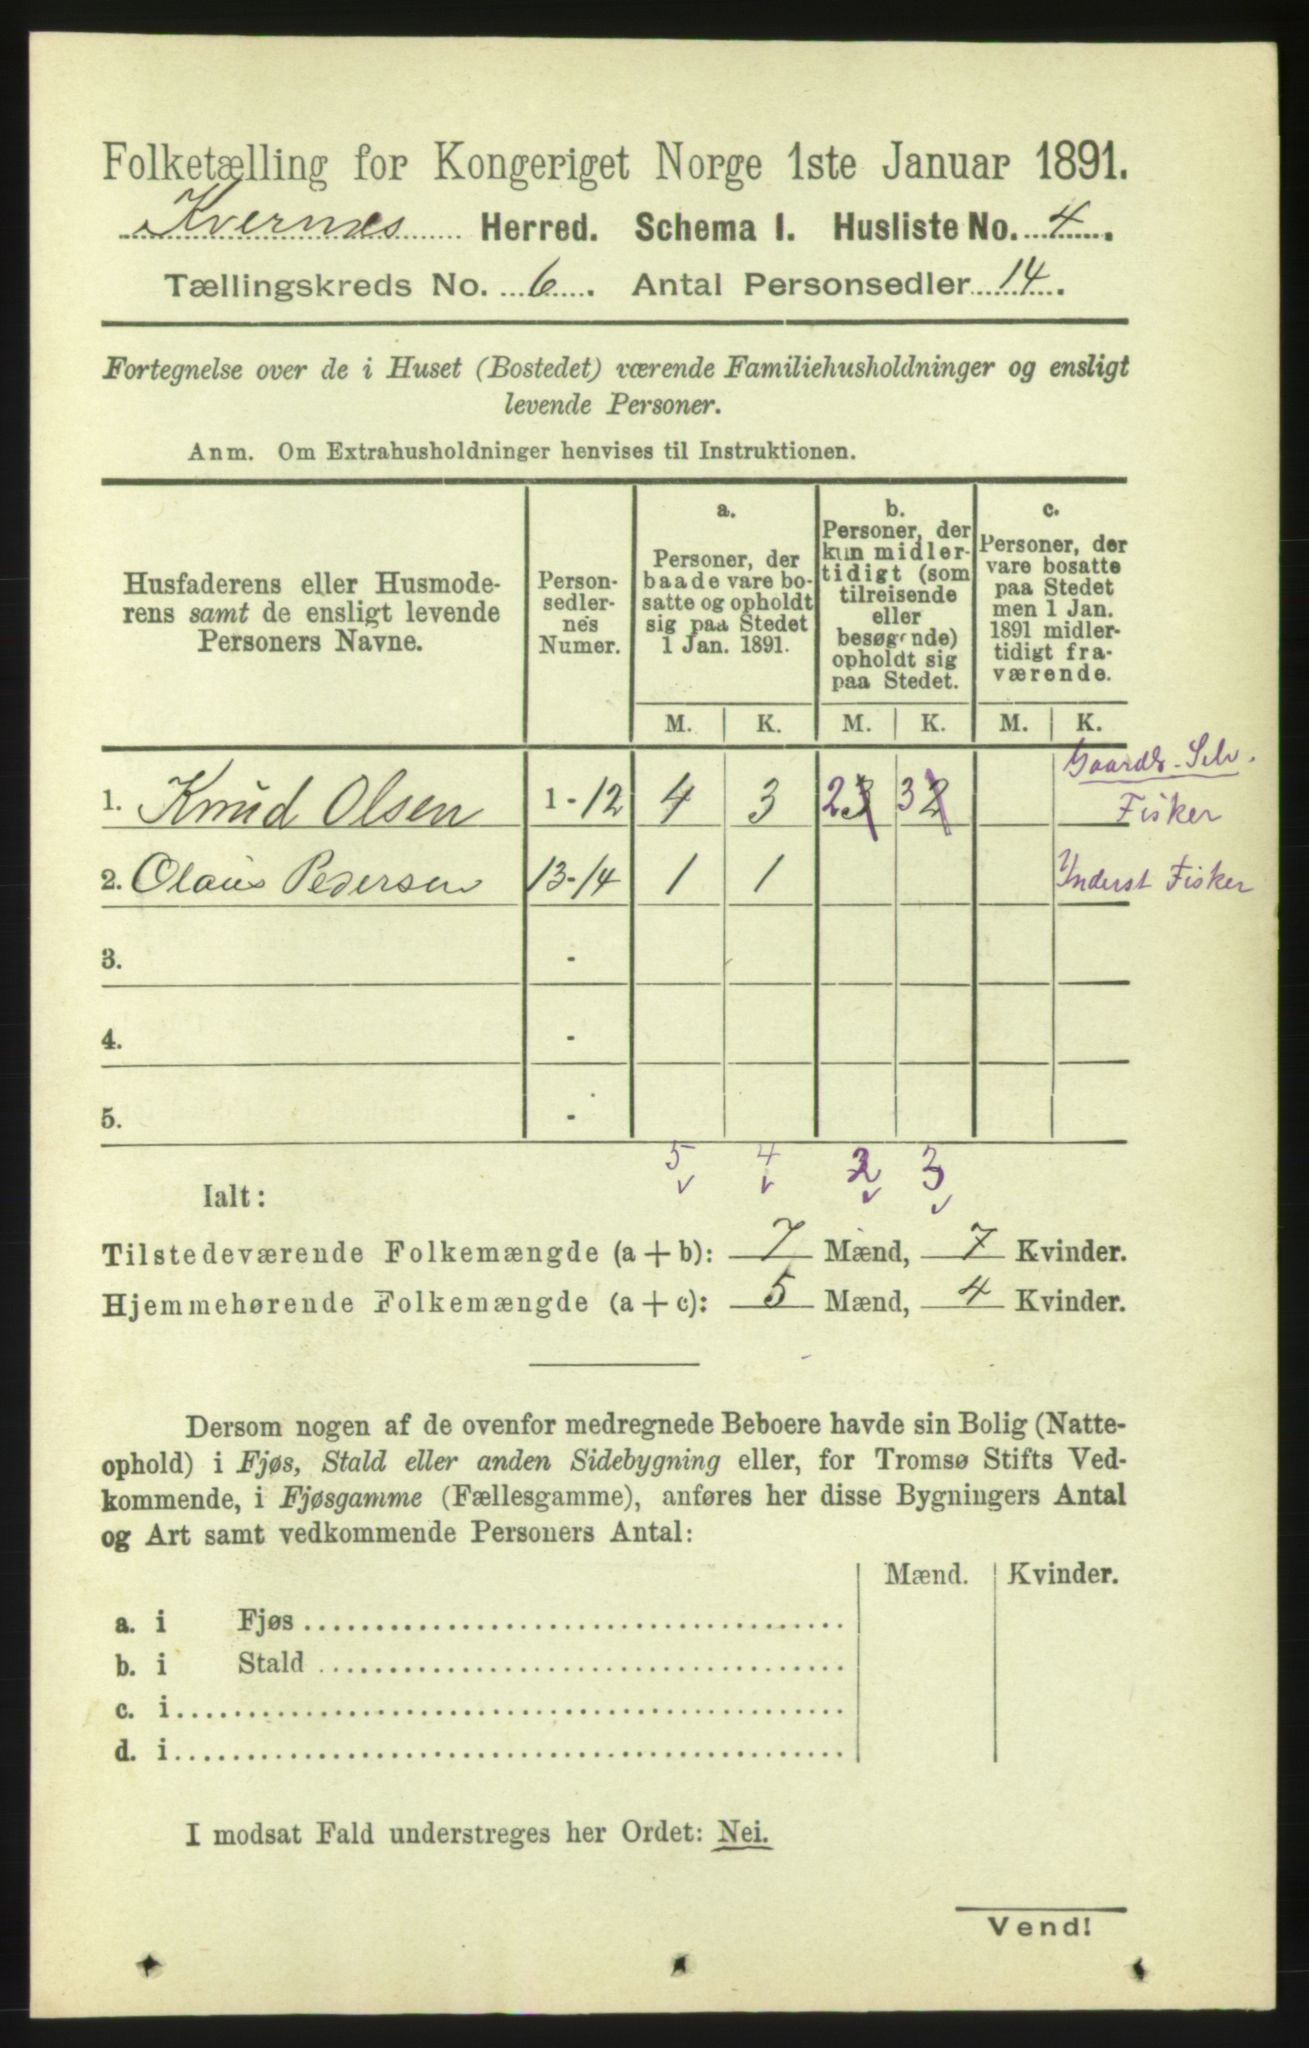 Folketælling for Kongeriget Norge 1ste Januar 1891.
Kvernes Herred. Schema I. Husliste No. 4.
Tællingskreds No. 6. Antal Personsedler 14.
Fortegnelse over de i Huset (Bostedet) værende Familiehusholdninger og ensligt
levende Personer.
Anm. Om Extrahusholdninger henvises til Instruktionen.
Husfaderens eller Husmode-
rens samt de ensligt levende
Personers Navne.
Person-
sedler-
nes
Numer.
a.
Personer, der
baade vare bo-
satte og opholdt
sig paa Stedet
1 Jan. 1891.
b.
Personer, der
kun midler-
tidigt (som
tilreisende
eller
besøgende)
opholdt sig
paa Stedet.
c.
Personer, der
vare bosatte
paa Stedet
men 1 Jan.
1891 midler-
tidigt fra-
værende.
M. K. M. K. M. K.
Gaardb. Selv.
1. Knud Olsen 1-12 4 3 2 3 3 2 Fisker
2. Olaus Pedersen 13-14 1 1 Inderst Fisker
3. -
4. -
5. -
5 4 2 3
Ialt:
Tilstedeværende Folkemængde (a+b): 7 Mænd, 7 Kvinder.
Hjemmehørende Folkemængde (a+c): 5 Mænd, 4 Kvinder.
Dersom nogen af de ovenfor medregnede Beboere havde sin Bolig (Natte-
ophold) i Fjøs, Stald eller anden Sidebygning eller, for Tromsø Stifts Ved-
kommende, i Fjøsgamme (Fællesgamme), anføres her disse Bygningers Antal
og Art samt vedkommende Personers Antal:
Mænd. Kvinder.
a. i Fjøs
b. i Stald
c. i
d. i
I modsat Fald understreges her Ordet: Nei.
Vend!